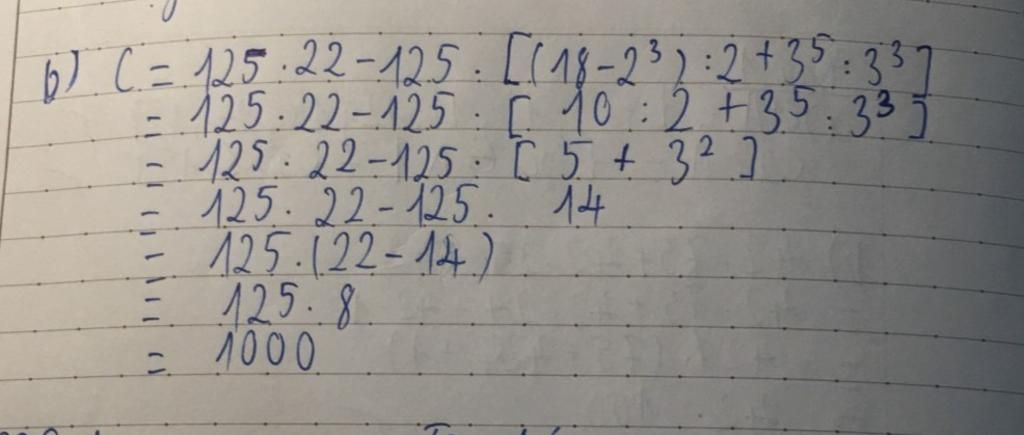 b) C = 125 · 22 - 125 · [(18 - 2³) : 2 + 3⁵ : 3³]
= 125 · 22 - 125 · [ 10 : 2 + 3⁵ : 3³ ]
= 125 · 22 - 125 · [ 5 + 3² ]
= 125 · 22 - 125 · 14
= 125 · (22 - 14)
= 125 · 8
= 1000